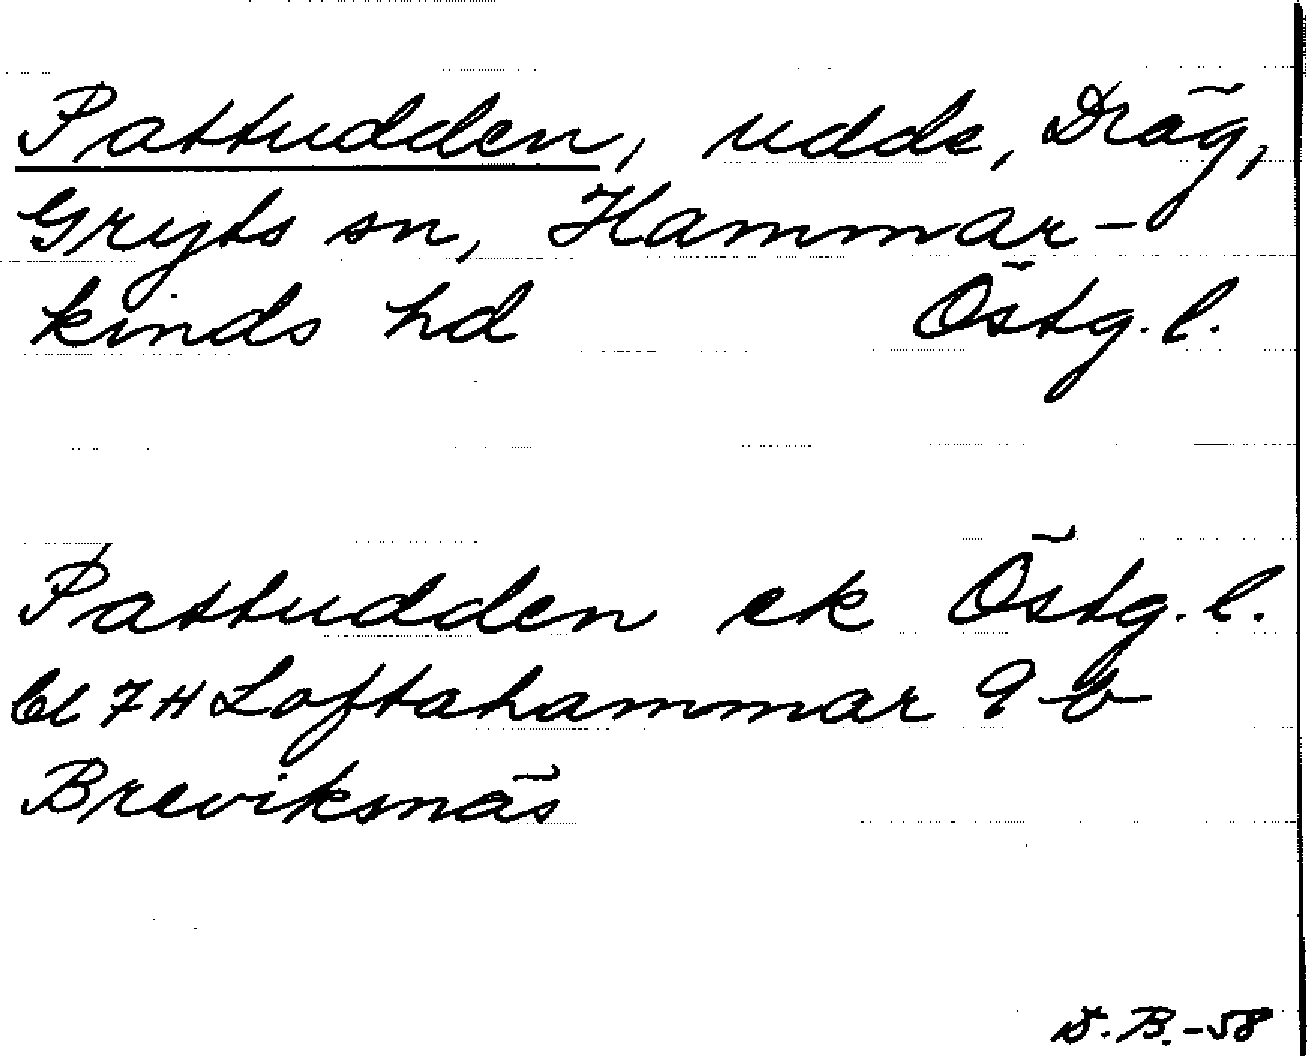 Pattudden, udde, Dräg,
Gryts sn, Hammar-
kinds hd Östg. l.
Pattudden ek Östg. l.
bl 7H Loftahammar 9 b
Breviksnäs
D. B. -58